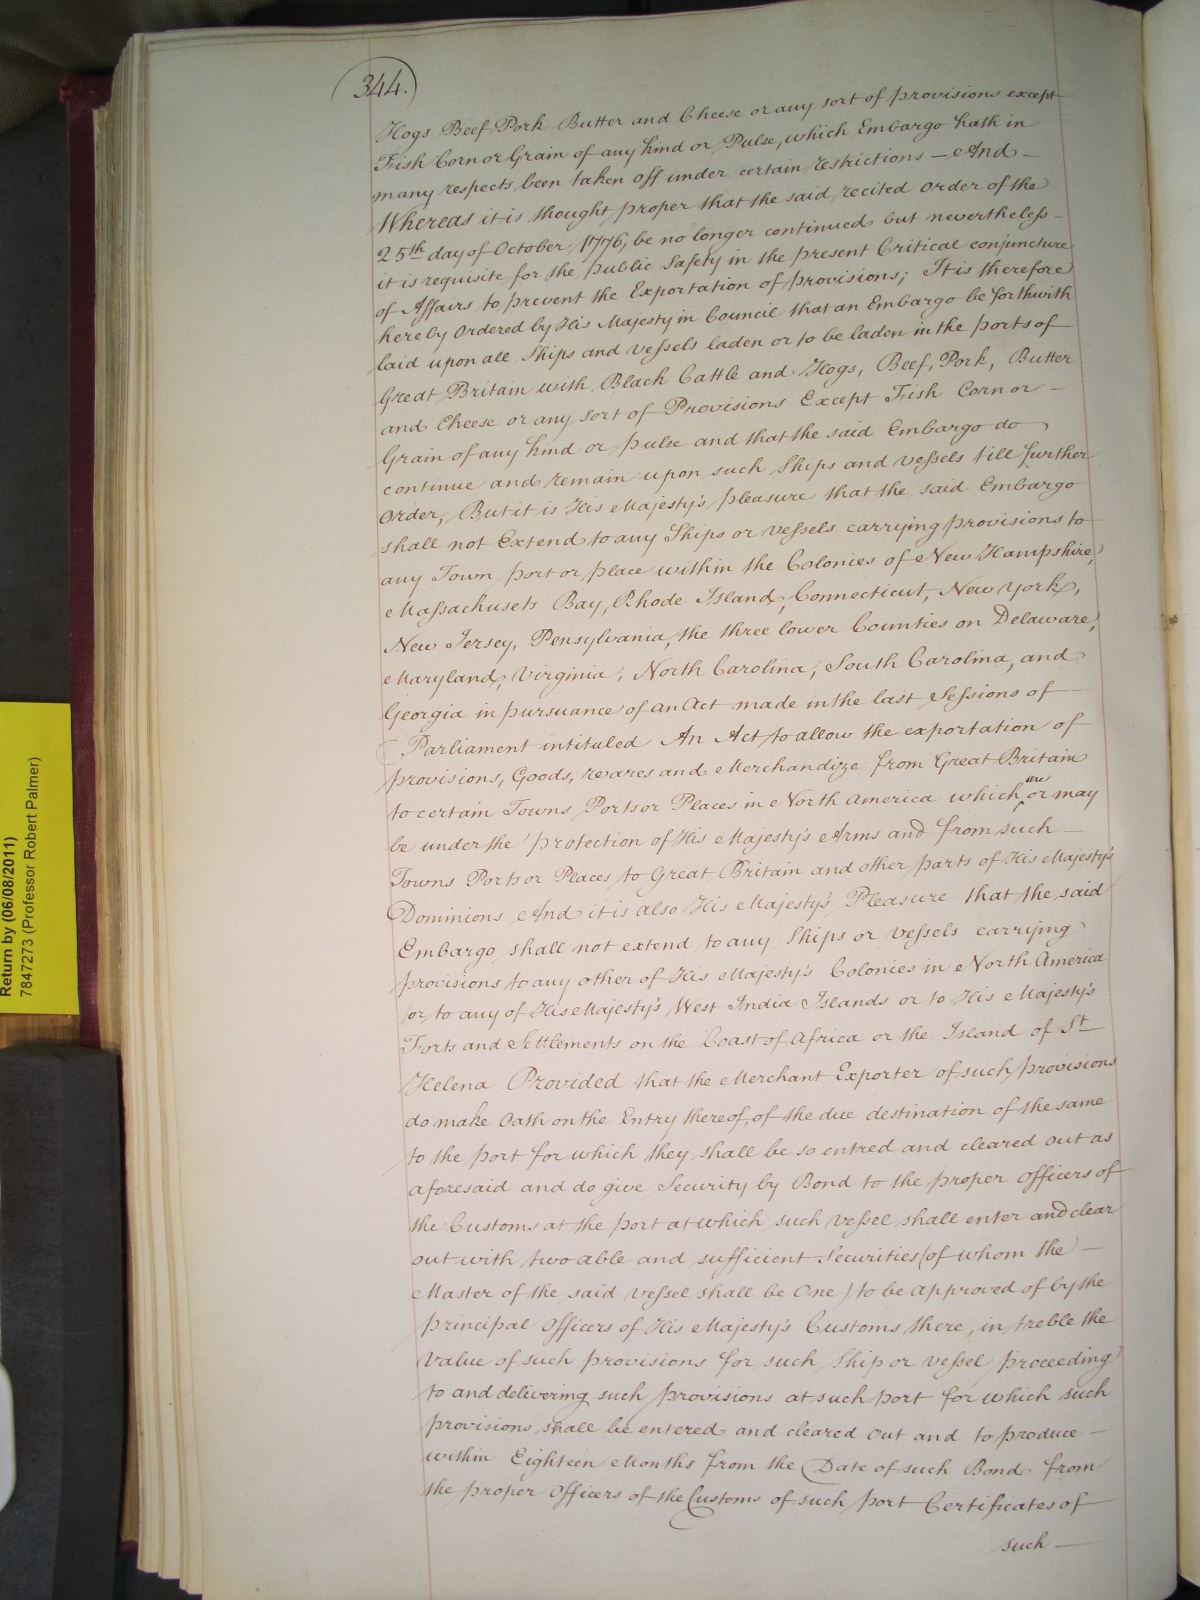 344.
Hogs Beef Pork Butter and Cheese or any sort of provisions except
Fish Corn or Grain of any kind or Pulse, which Embargo hath in
many respects been taken off under certain restrictions — And —
Whereas it is thought proper that the said recited Order of the
25th day of October 1776, be no longer continued but nevertheless —
it is requisite for the public Safety in the present Critical conjuncture
of Affairs to prevent the Exportation of provisions; It is therefore
hereby Ordered by His Majesty in Council that an Embargo be forthwith
laid upon all Ships and vessels laden or to be laden in the ports of
Great Britain with Black Cattle and Hogs, Beef, Pork, Butter
and Cheese or any sort of Provisions Except Fish Corn or —
Grain of any kind or pulse and that the said Embargo do
continue and remain upon such Ships and vessels till further
Order, But it is His Majesty's pleasure that the said Embargo
shall not Extend to any Ships or vessels carrying provisions to
any Town port or place within the Colonies of New Hampshire,
Massachusets Bay, Rhode Island, Connecticut, New York,
New Jersey, Pensylvania, the three lower Counties on Delaware,
Maryland, Virginia, North Carolina, South Carolina, and
Georgia in pursuance of an Act made in the last Sessions of
Parliament intituled An Act to allow the exportation of
provisions, Goods, wares and Merchandize from Great Britain
to certain Towns Ports or Places in North America which are or may
be under the protection of His Majesty's Arms and from such —
Towns Ports or Places to Great Britain and other parts of His Majesty's
Dominions And it is also His Majesty's Pleasure that the said
Embargo shall not extend to any Ships or vessels carrying
provisions to any other of His Majesty's Colonies in North America
or to any of His Majesty's West India Islands or to His Majesty's
Forts and Settlements on the Coast of Africa or the Island of St
Helena Provided that the Merchant Exporter of such provisions
do make Oath on the Entry thereof, of the due destination of the same
to the port for which they shall be so entred and cleared out as
aforesaid and do give Security by Bond to the proper Officers of
the Customs at the port at which such vessel shall enter and clear
out with two able and sufficient Securities (of whom the —
Master of the said vessel shall be One) to be approved of by the
principal Officers of His Majesty's Customs there, in treble the
value of such provisions for such Ship or vessel proceeding
to and delivering such provisions at such port for which such
provisions shall be entered and cleared out and to produce —
within Eighteen Months from the Date of such Bond from
the proper Officers of the Customs of such port Certificates of
such —
Return by (06/08/2011)
7847273 (Professor Robert Palmer)